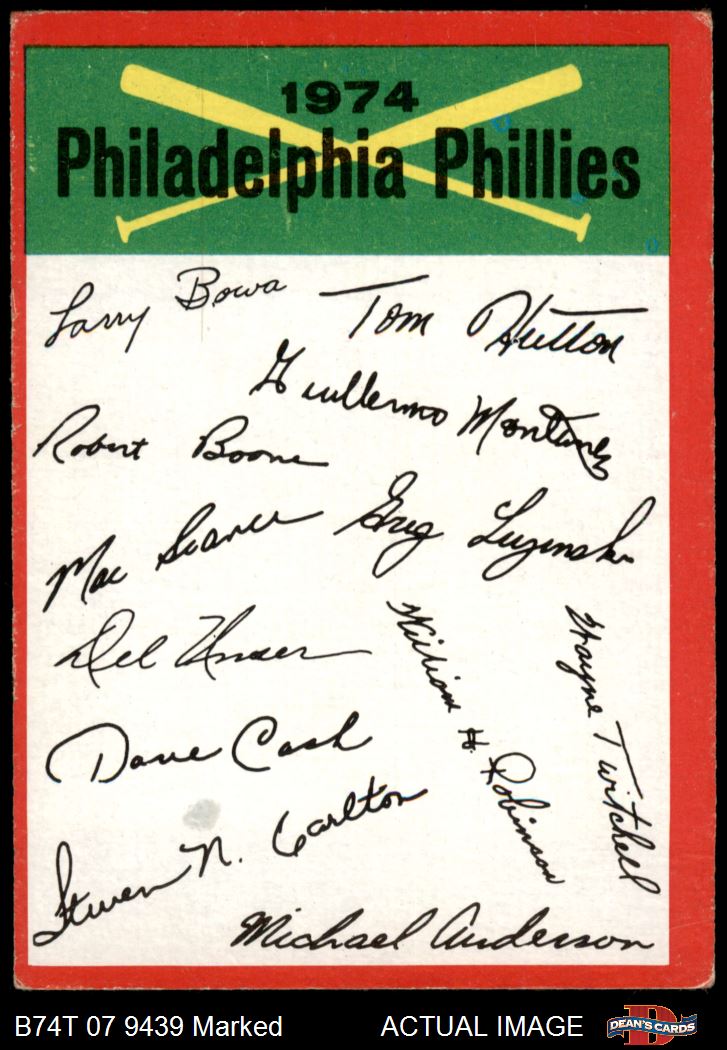 1974
Philadelphia Phillies
Larry Bowa
Tom Hutton
Guillermo Montanez
Robert Boone
Mac Scarce
Greg Luzinski
Del Unser
William H. Robinson
Wayne Twitchell
Dave Cash
Steven N. Carlton
Michael Anderson
B74T 07 9439 Marked
ACTUAL IMAGE
DEAN'S CARDS